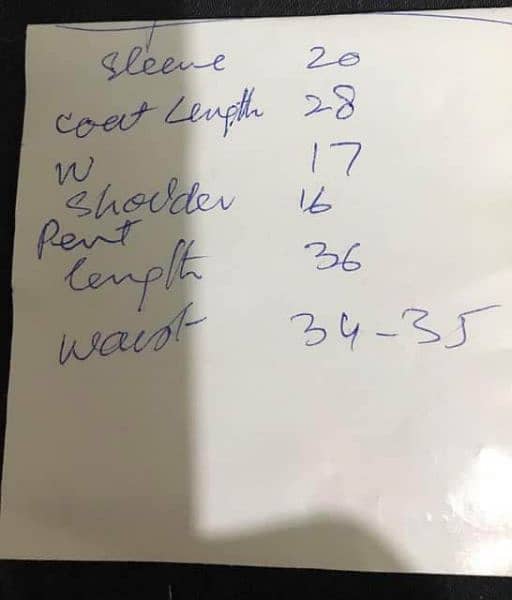 Sleeve 20
Coat Length 28
W 17
Shoulder 16
Pent
length 36
Waist 34-35